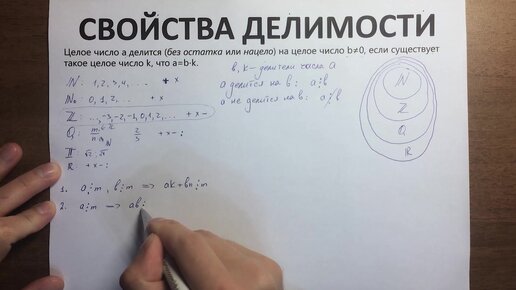 СВОЙСТВА ДЕЛИМОСТИ
Целое число а делится (без остатка или нацело) на целое число b≠0, если существует
такое целое число k, что a=b·k.
ℕ: 1, 2, 3, 4, ... + ×
ℕ₀: 0, 1, 2, ... + ×
ℤ: ..., -3, -2, -1, 0, 1, 2, ... + × −
ℚ: m/n 2/3 + × − :
ℝ + × − :
b, k – делители числа a
a делится на b: a⋮b
a не делится на b:
ℕ
ℤ
ℚ
ℝ
1. a⋮m, b⋮m ⇒ ak+bn⋮m
2. a⋮m ⇒ ab⋮